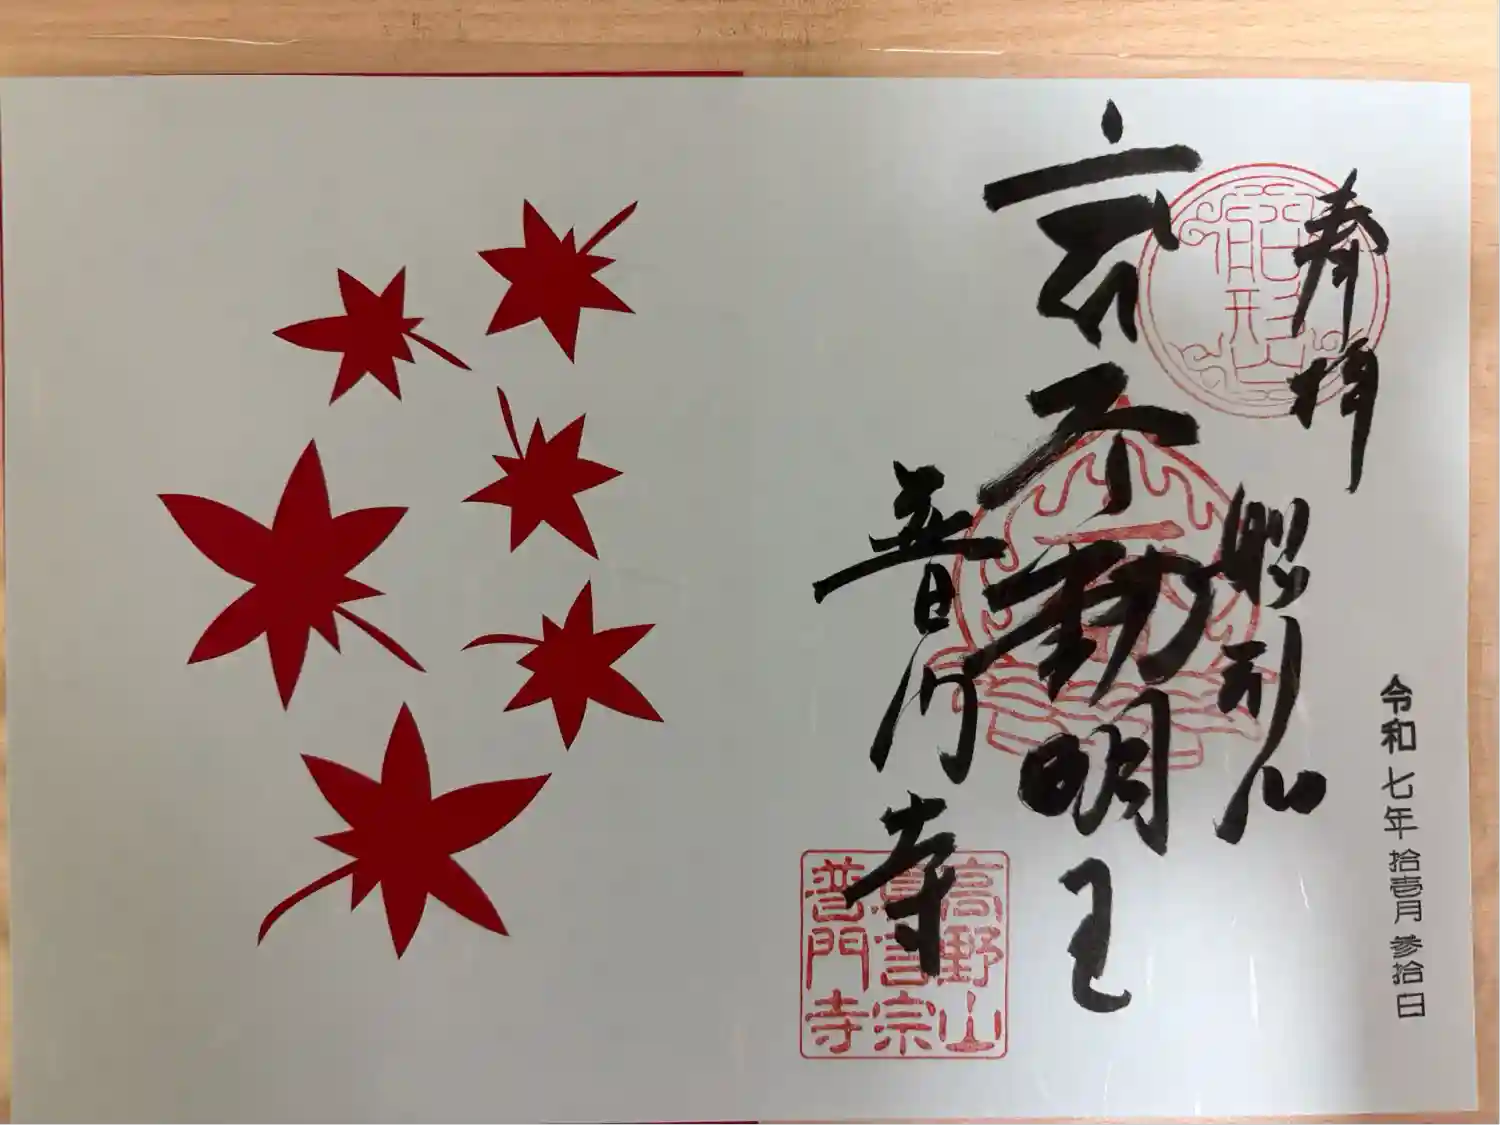 奉拝
船形山
船形山
不動明王
普門寺
高野山
眞言宗
普門寺
令和七年拾壱月参拾日